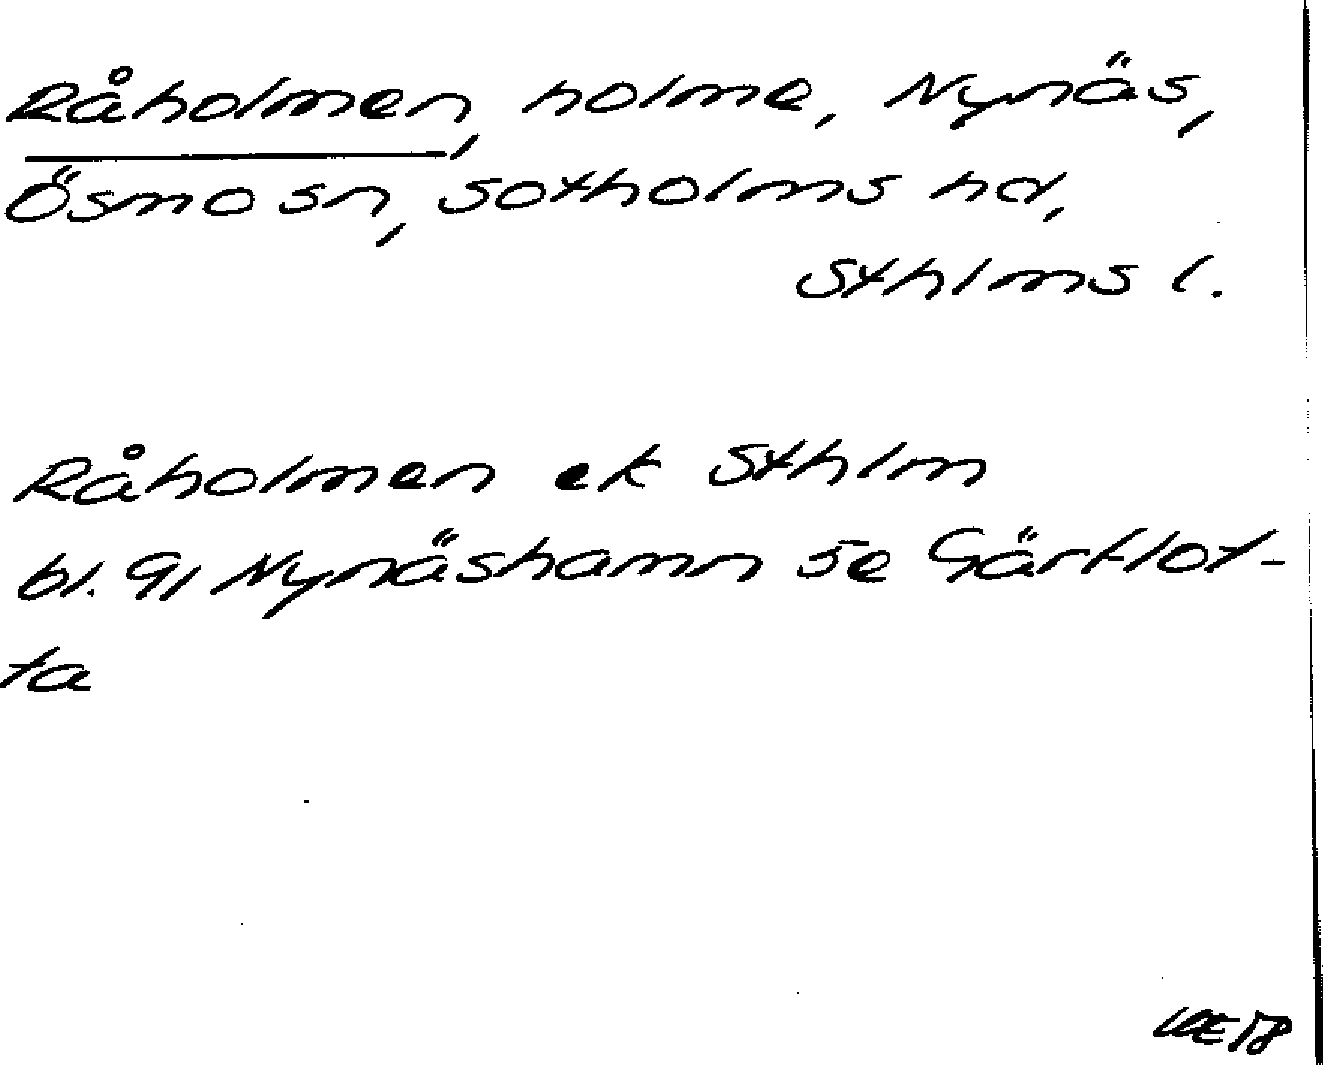 Råholmen, holme, Nynäs,
Ösmo sn, Sotholms hd,
Sthlms l.
Råholmen ek Sthlm
bl. 91 Nynäshamn se Gärflot-
ta